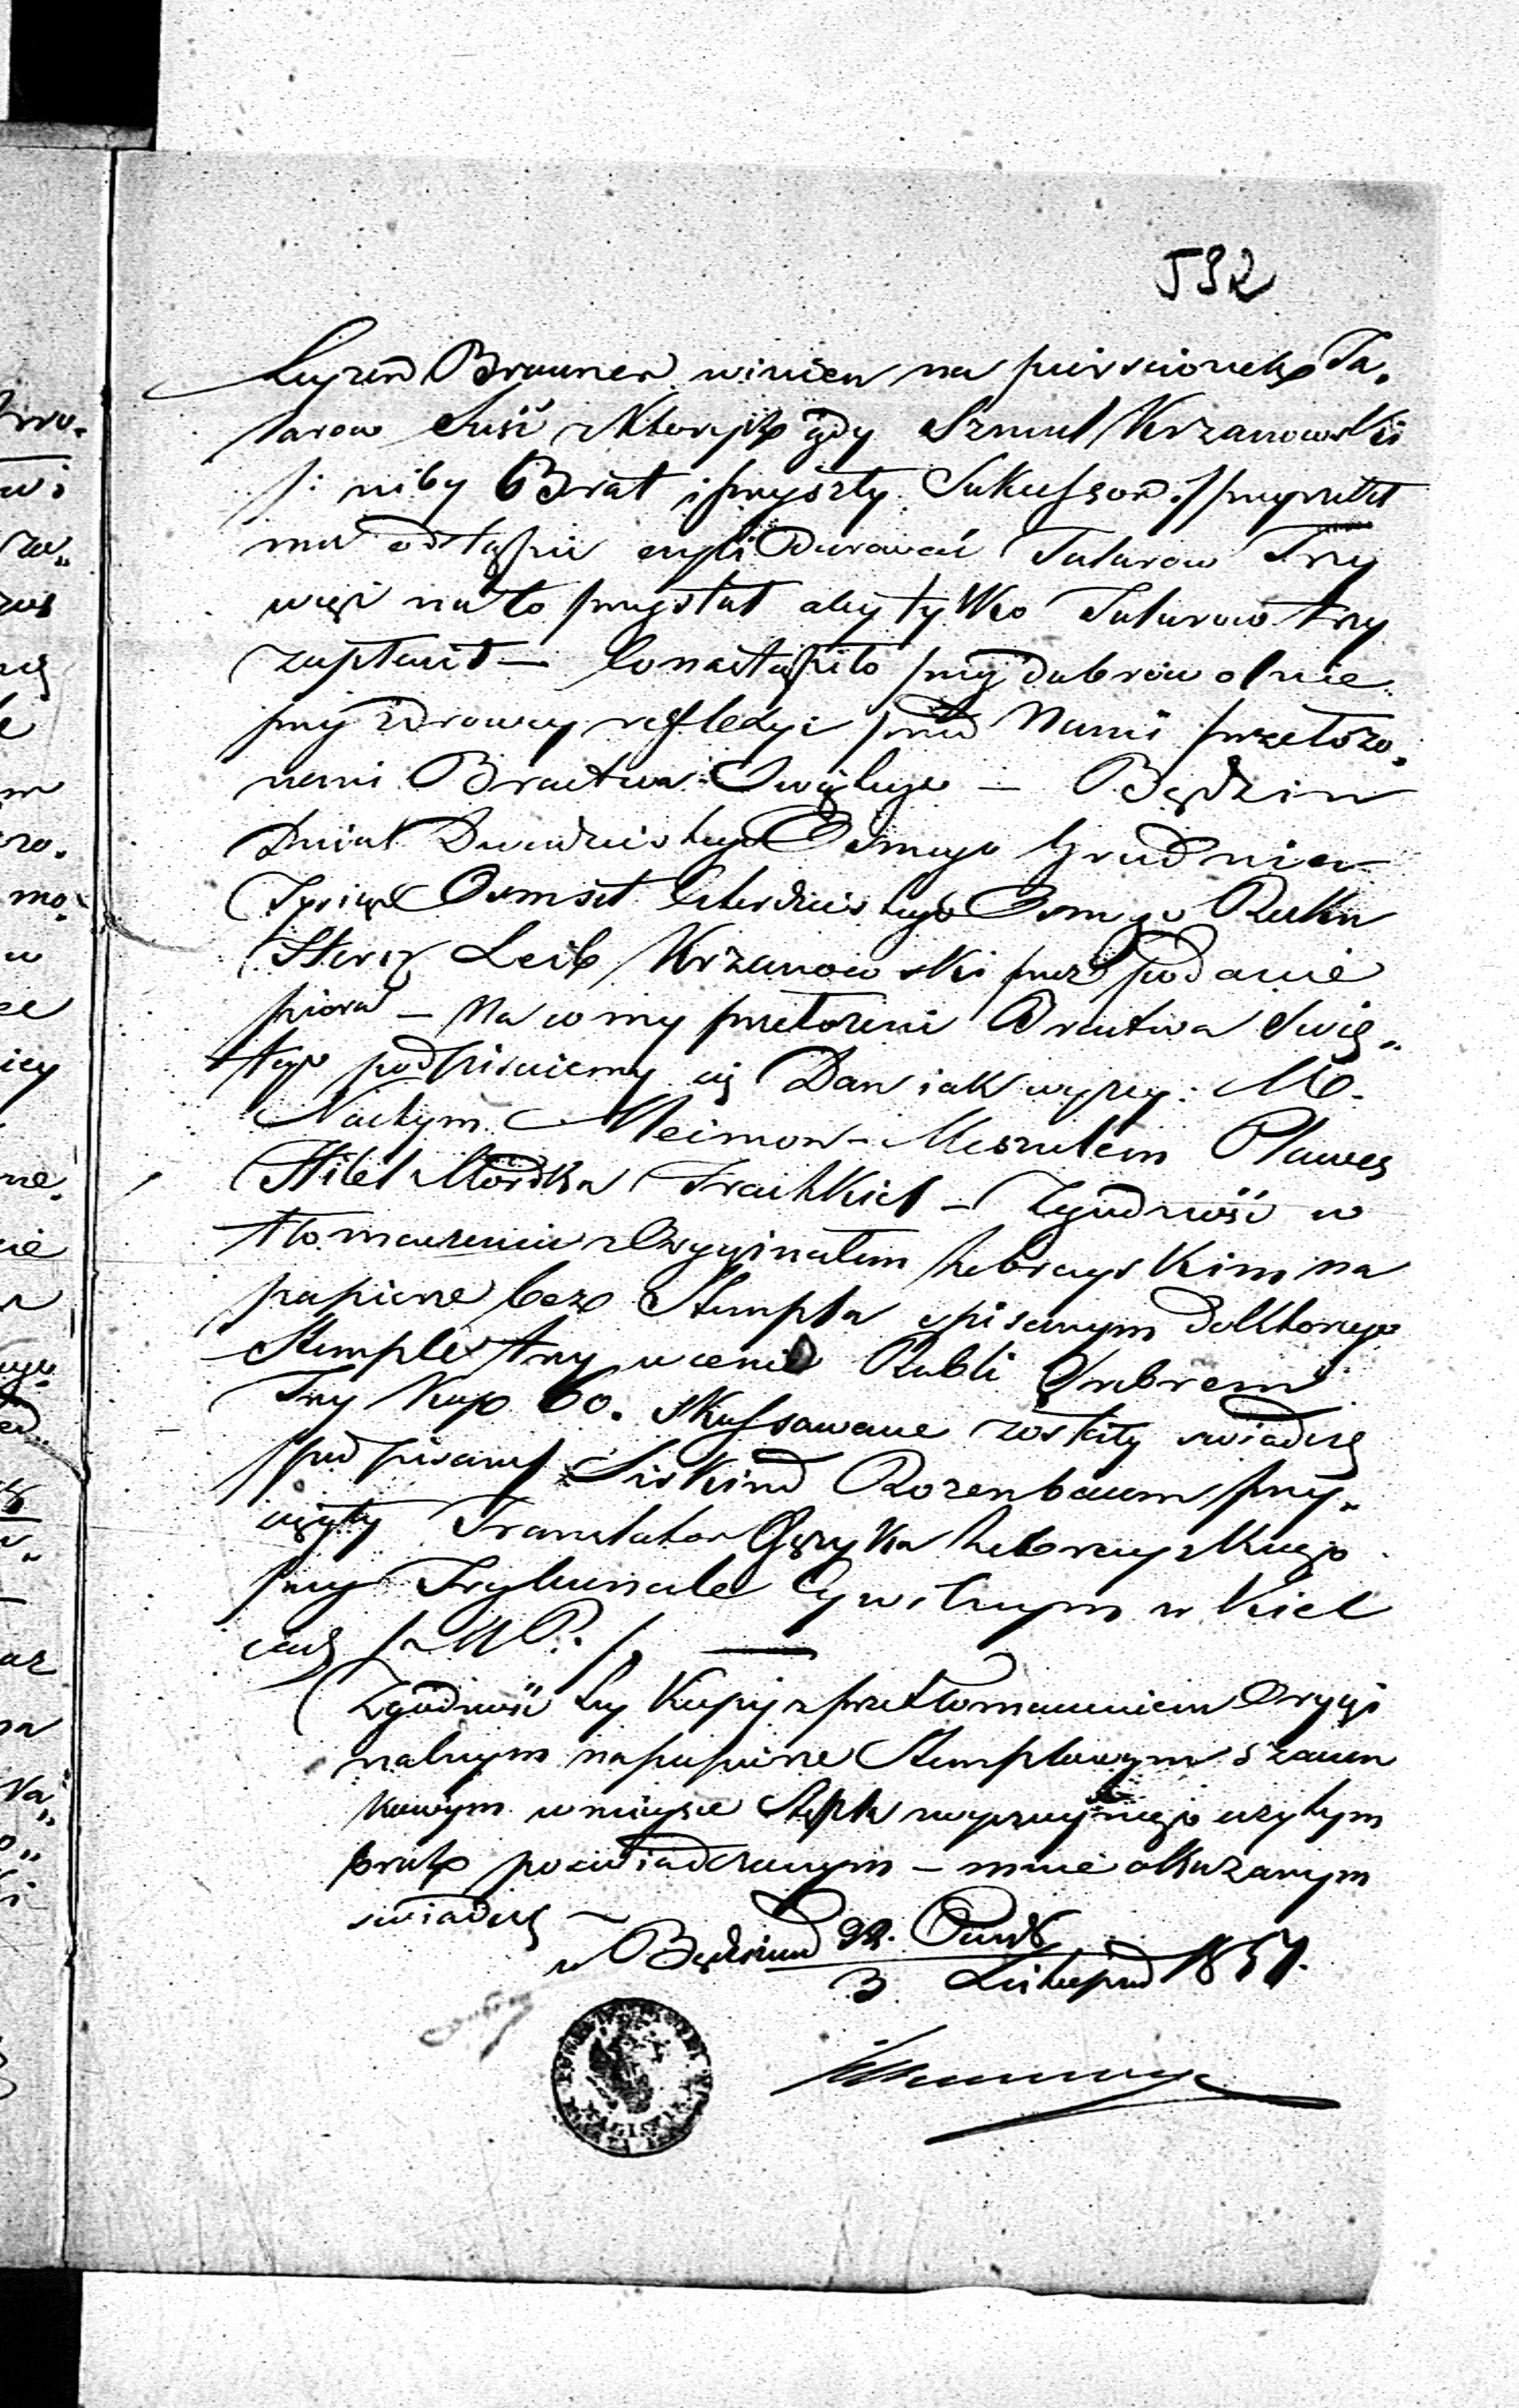 532
Layzer Brauner winien na pierscionek Ta,
larow sześć z ktorych gdy Szmul Krzanowski
/: niby Brat i przyszły Sukcessor :/ przyrzekł
mu odstąpić czyli Darować Talarow Trzy
więc na to przystał aby tylko Talarow trzy
zapłacił — Co nastąpiło przy dobrowolnie
przy zdrowey reflexyi przed Nami przełożo,
nemi Bractwa Swiętego — Będzin
Dnia Dwudziestego Osmego Grudnia
Tysiąc Osmset Czterdziestego Osmego Roku
Hersz Leib Krzanowski przez podanie
piora — Na co my przełożeni Bractwa Swię,
tego podpisuiemy się Dan iak wyżey. M.
Nachym Meimon - Meszulem Plawes
Hilel Mordka Traihkiel — Zgodność w
tłomaczeniu z Oryginałem hebrayskim na
papierze bez Stempla spisanym do którego
Stemple trzy w cenie Rubli Srebrem
Trzy Kop 60. skassowane zostały swiadczę
podpisany Siskind Rozenbaum przy,
sięgły Translator Języka hebrayskiego
przy Trybunale Cywilnym w Kiel
cach /: M P. :/ —
Zgodność tey Kopij z przetłomaczeniem Orygi
nalnym na papierze Stemplowym szacun
kowym w mieysce Stepla zwyczaynego użytym
oraz poswiadczonym — mnie okazanym
swiadczę —
w Będzinie 22. Paźdz
3 Listopad 1851.